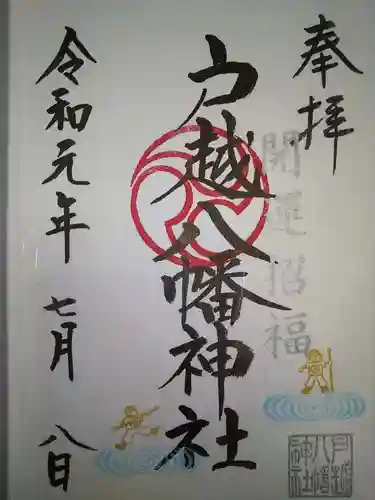 奉拝
開運招福
戸越八幡神社
戸越八幡神社
令和元年 七月 八日